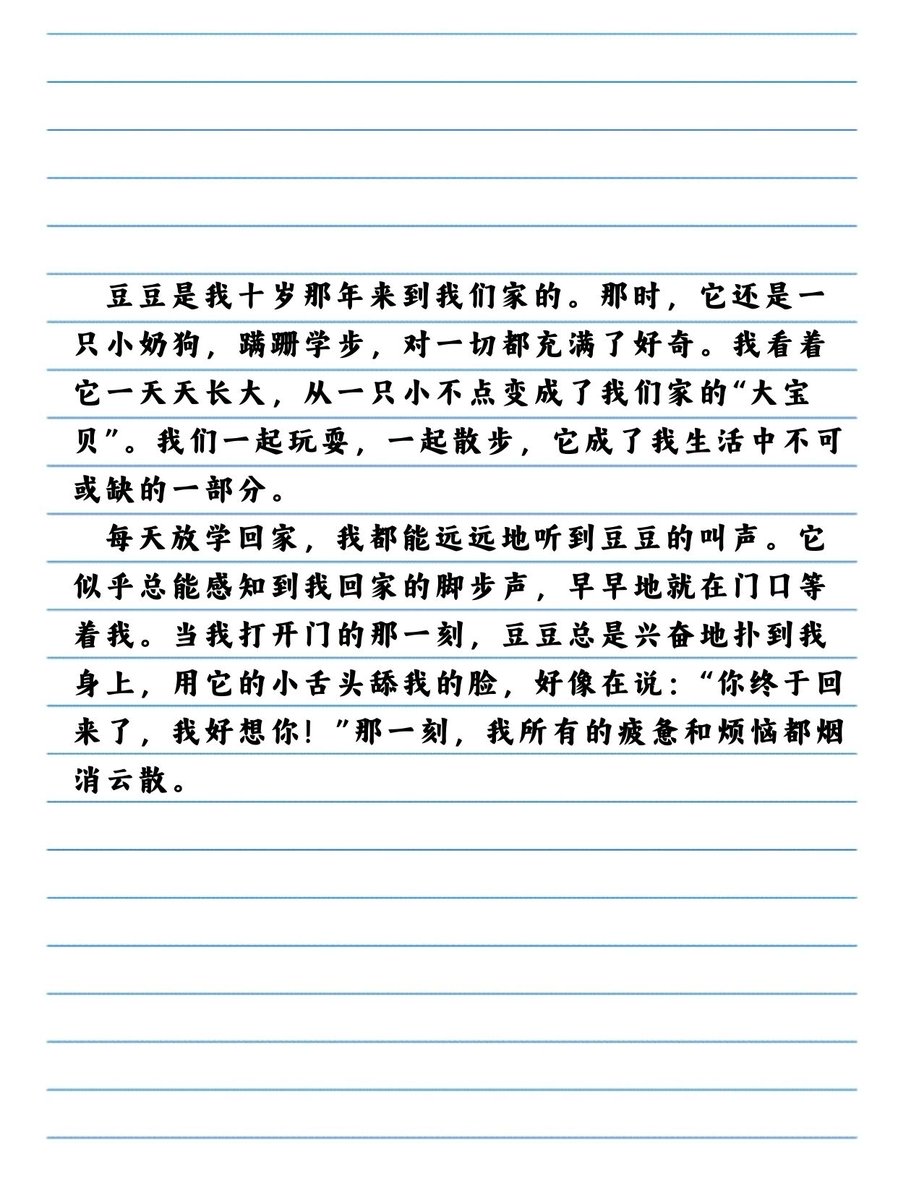 豆豆是我十岁那年来到我们家的。那时，它还是一
只小奶狗，蹒跚学步，对一切都充满了好奇。我看着
它一天天长大，从一只小不点变成了我们家的“大宝
贝”。我们一起玩耍，一起散步，它成了我生活中不可
或缺的一部分。
每天放学回家，我都能远远地听到豆豆的叫声。它
似乎总能感知到我回家的脚步声，早早地就在门口等
着我。当我打开门的那一刻，豆豆总是兴奋地扑到我
身上，用它的小舌头舔我的脸，好像在说：“你终于回
来了，我好想你！”那一刻，我所有的疲惫和烦恼都烟
消云散。